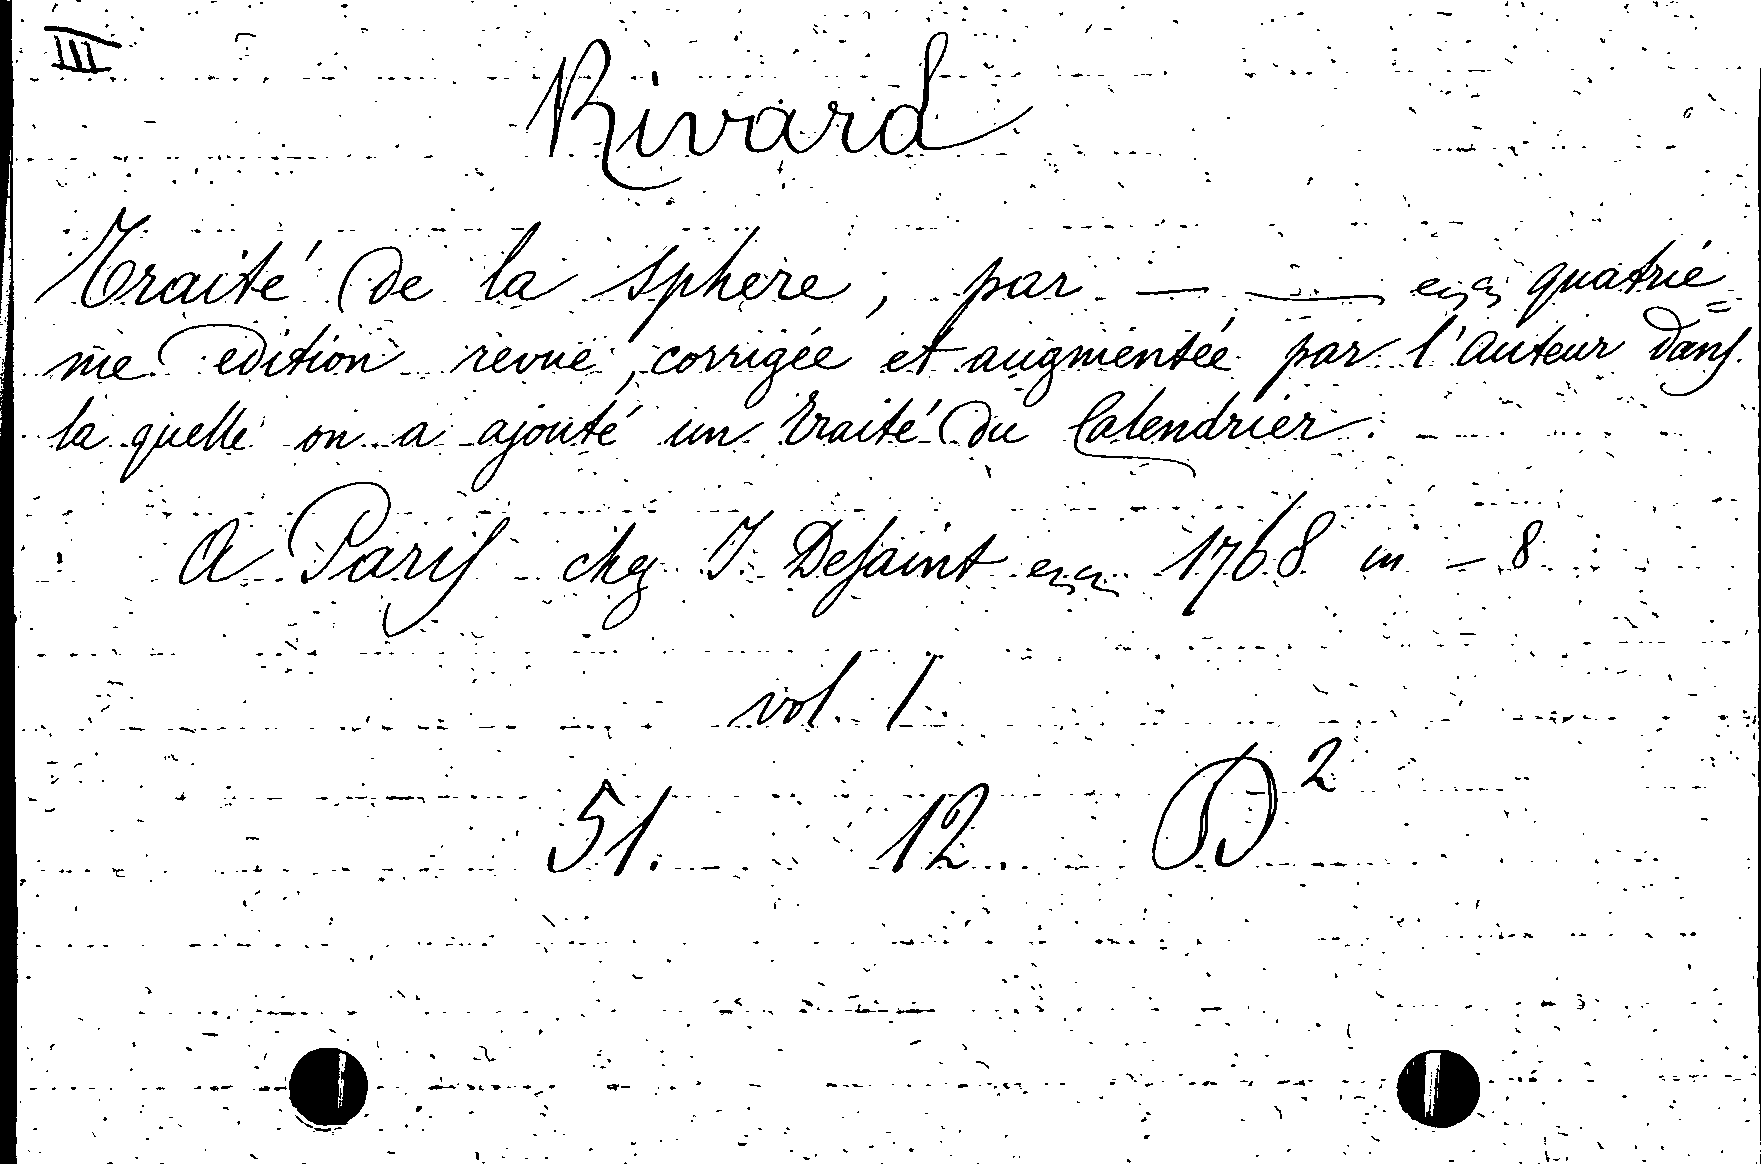 III
Rivard
Traité de la sphere, par — — quatrié=
me edition revue, corrigée et augmentée par l'Auteur dans
la quelle on a ajouté un traité du Calendrier.
A Paris chez J. Desaint 1768 in – 8
vol. 1.
51. 12. D 2